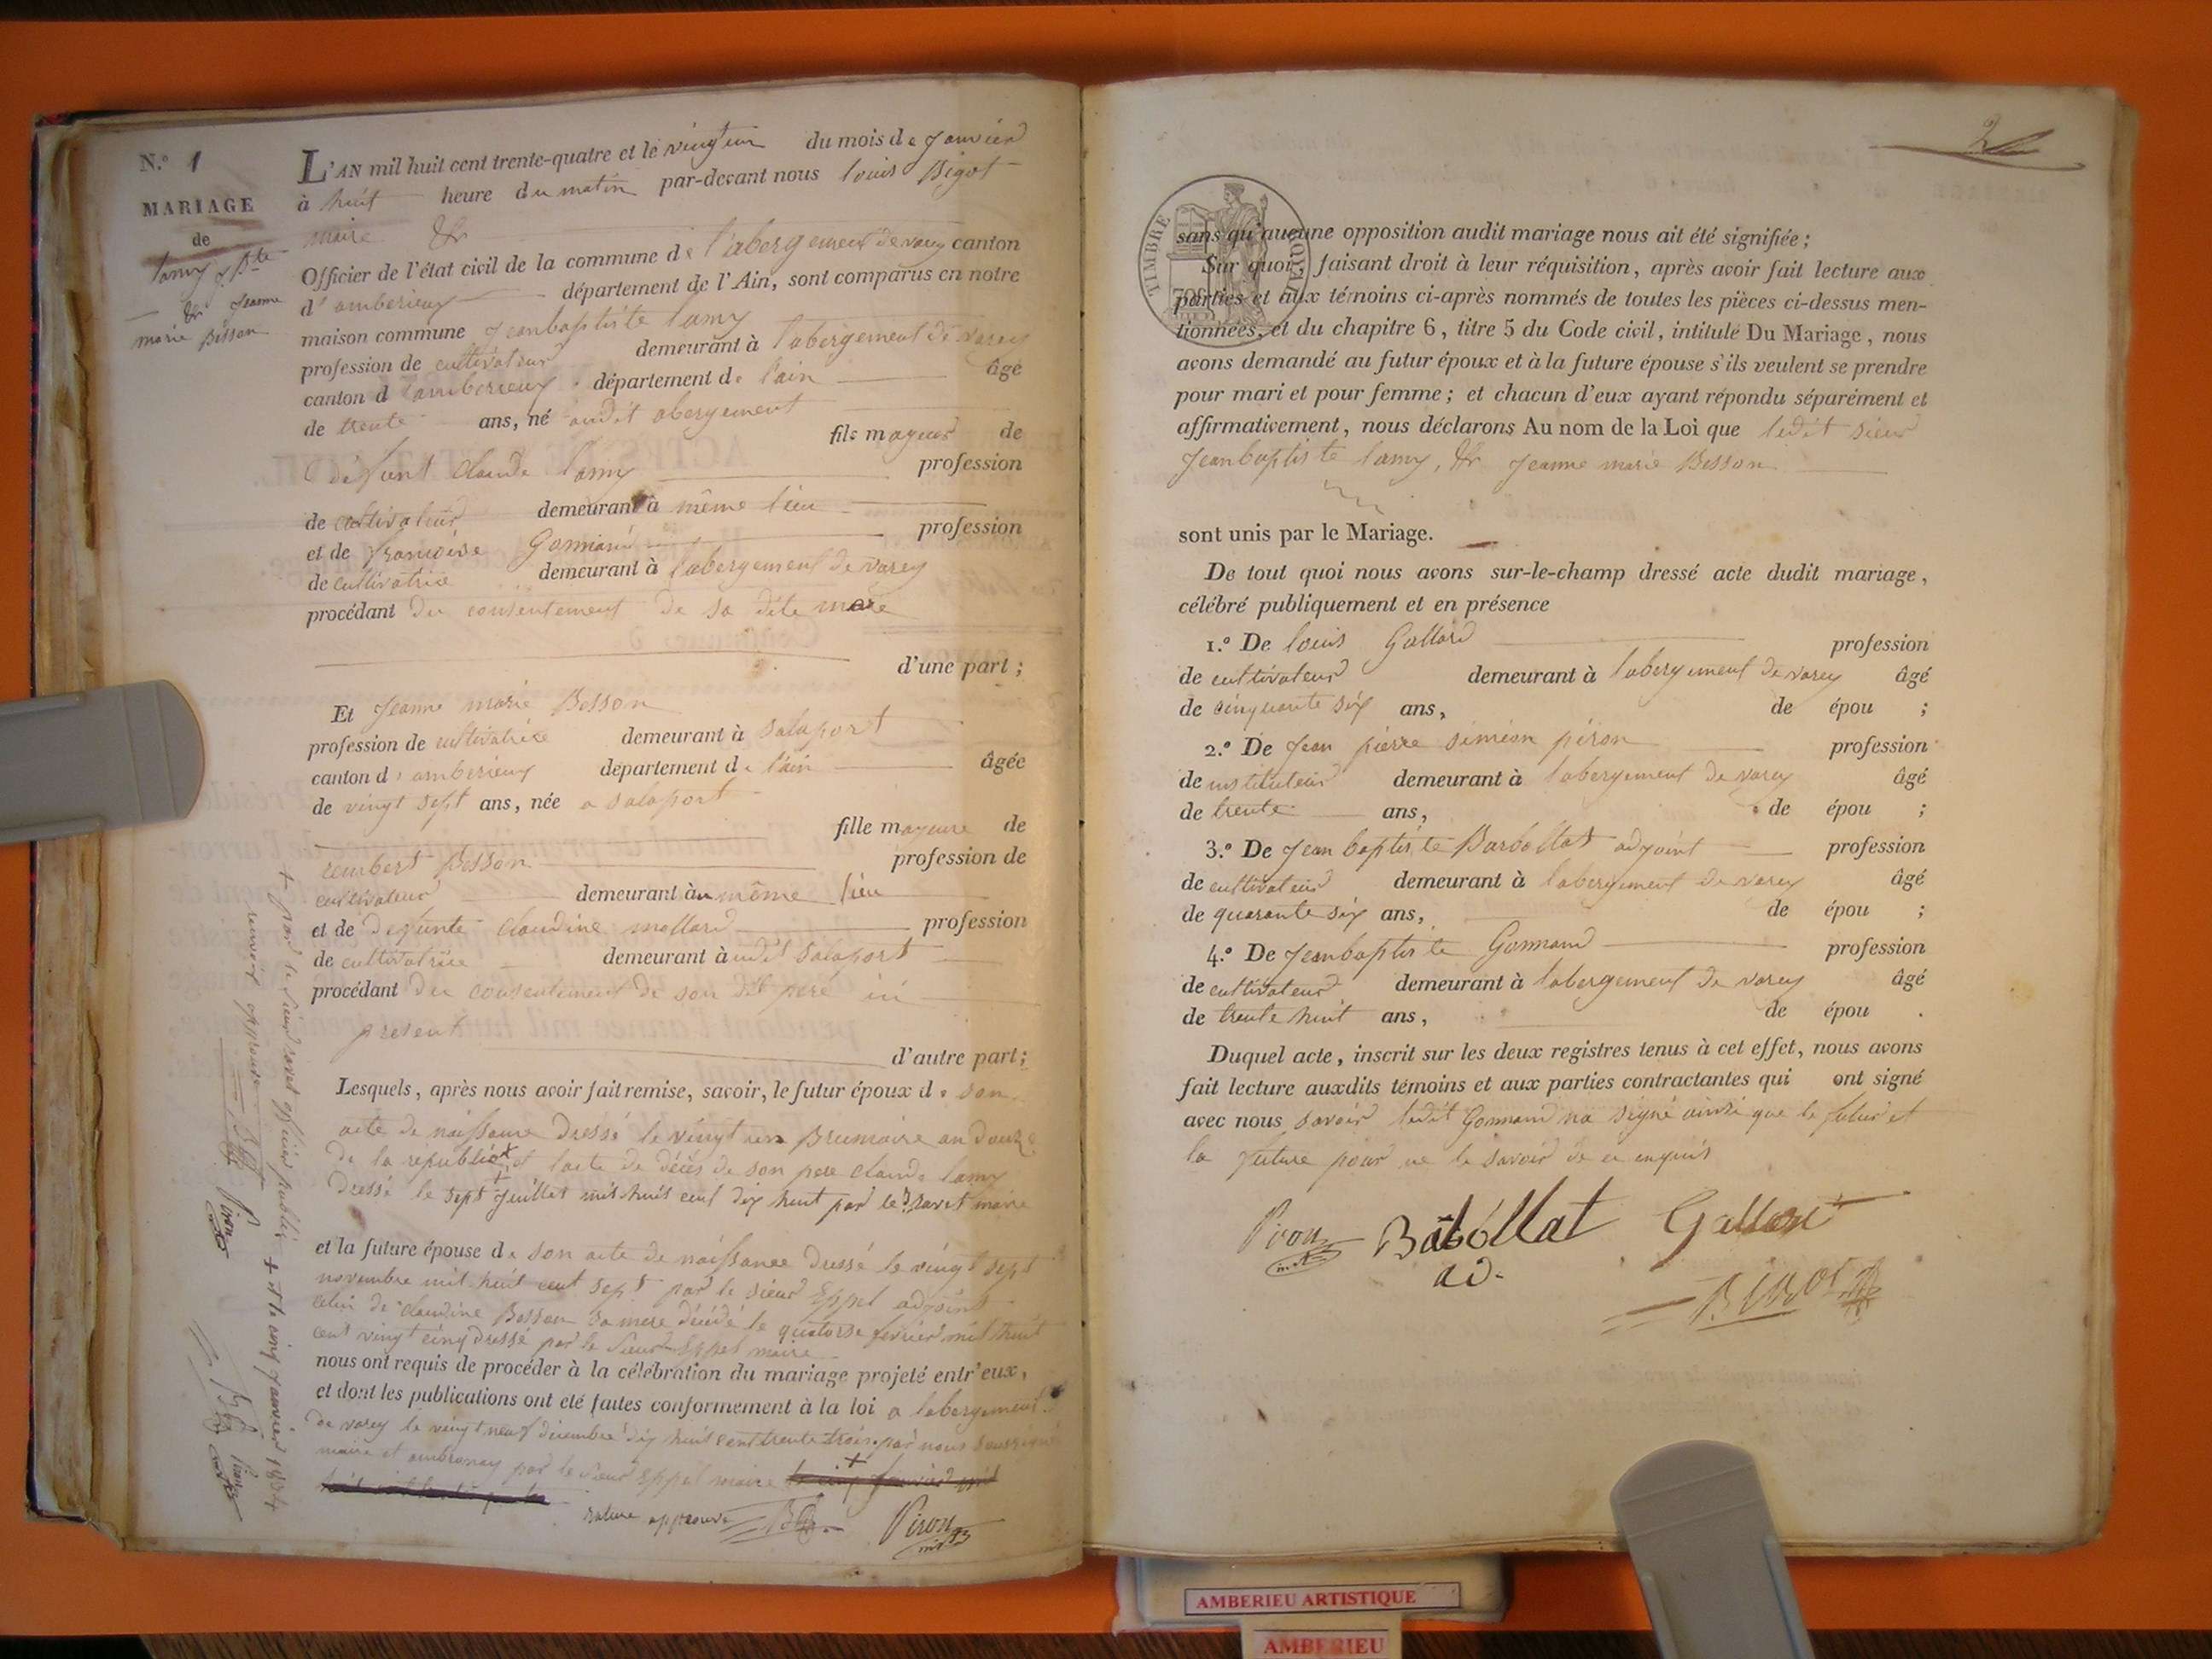 N.º 1
MARIAGE
de
lamy j. Bte
& Jeanne
marie Besson
L'AN mil huit cent trente-quatre et le vingt un du mois de Janvier
à huit heure du matin par-devant nous louis Bigot
maire &
Officier de l'état civil de la commune de l'abergement de varey canton
d'amberieux département de l'Ain, sont comparus en notre
maison commune Jeanbaptiste lamy
profession de cultivateur demeurant à l'abergement de varey
canton d'amberieux département de l'ain âgé
de trente ans, né audit abergement
fils majeur de
défunt Claude lamy profession
de cultivateur demeurant à même lieu
et de françoise Gonnand profession
de cultivatrice demeurant à l'abergement de varey
procédant du consentement de sa dite mere
d'une part ;
Et Jeanne marie Besson
profession de cultivatrice demeurant à salaport
canton d'amberieux département de l'ain âgée
de vingt sept ans, née a salaport
fille majeure de
rembert Besson profession de
cultivateur demeurant à u même lieu
et de defunte Claudine mollard profession
de cultivatrice demeurant à udit salaport
procédant du consentement de son dit pere ici
present
d'autre part;
Lesquels, après nous avoir fait remise, savoir, le futur époux de son
acte de naissance dressé le vingt un Brumaire an douze
de la republique et l'acte de décès de son pere Claude lamy
dressé le sept + Juillet mil huit cent dix huit par le Sr. Ravet maire
et la future épouse de son acte de naissance dressé le vingt sept
novembre mil huit cent sept par le sieur Eppel adjoint
celui de Claudine Besson sa mere décédé le quatorse fevrier mil huit
cent vingt cinq dressé par le Sieur Eppel maire
nous ont requis de procéder à la célébration du mariage projeté entr'eux,
et dont les publications ont été faites conformement à la loi a labergement
de varey le vingt neuf décembre dix huit cent trente trois par nous soussigné
maire et ambronay par le Sieur Eppel maire + le cinq Janvier mil
rature approuvé Piron
+ par le sieur ravet officier public
renvoi approuvé Piron
+ et le cinq Janvier 1834
2
TIMBRE
sans qu'aucune opposition audit mariage nous ait été signifiée ;
Sur quoi, faisant droit à leur réquisition, après avoir fait lecture aux
parties et aux témoins ci-après nommés de toutes les pièces ci-dessus men-
tionnées, et du chapitre 6, titre 5 du Code civil, intitulé Du Mariage, nous
avons demandé au futur époux et à la future épouse s'ils veulent se prendre
pour mari et pour femme ; et chacun d'eux ayant répondu séparément et
affirmativement, nous déclarons Au nom de la Loi que ledit sieur
Jeanbaptiste lamy, & Jeanne marie Besson
sont unis par le Mariage.
De tout quoi nous avons sur-le-champ dressé acte dudit mariage,
célébré publiquement et en présence
1.º De louis Gallard profession
de cultivateur demeurant à l'abergement de varey âgé
de cinquante six ans, de épou ;
2.º De Jean pierre siméon piron profession
de instituteur demeurant à l'abergement de varey âgé
de trente ans, de épou ;
3.º De Jean baptiste Barbollat adjoint profession
de cultivateur demeurant à labergement de varey âgé
de quarante six ans, de épou ;
4.º De Jeanbaptiste Gonnand profession
de cultivateur demeurant à labergement de varey âgé
de trente huit ans, de épou .
Duquel acte, inscrit sur les deux registres tenus à cet effet, nous avons
fait lecture auxdits témoins et aux parties contractantes qui ont signé
avec nous savoir ledit Gonnand na signé ainsi que le futur et
la future pour ne le savoir de ce enquis
Piron Babollat Gallard
ad.
BIGOT
AMBERIEU ARTISTIQUE
AMBERIEU